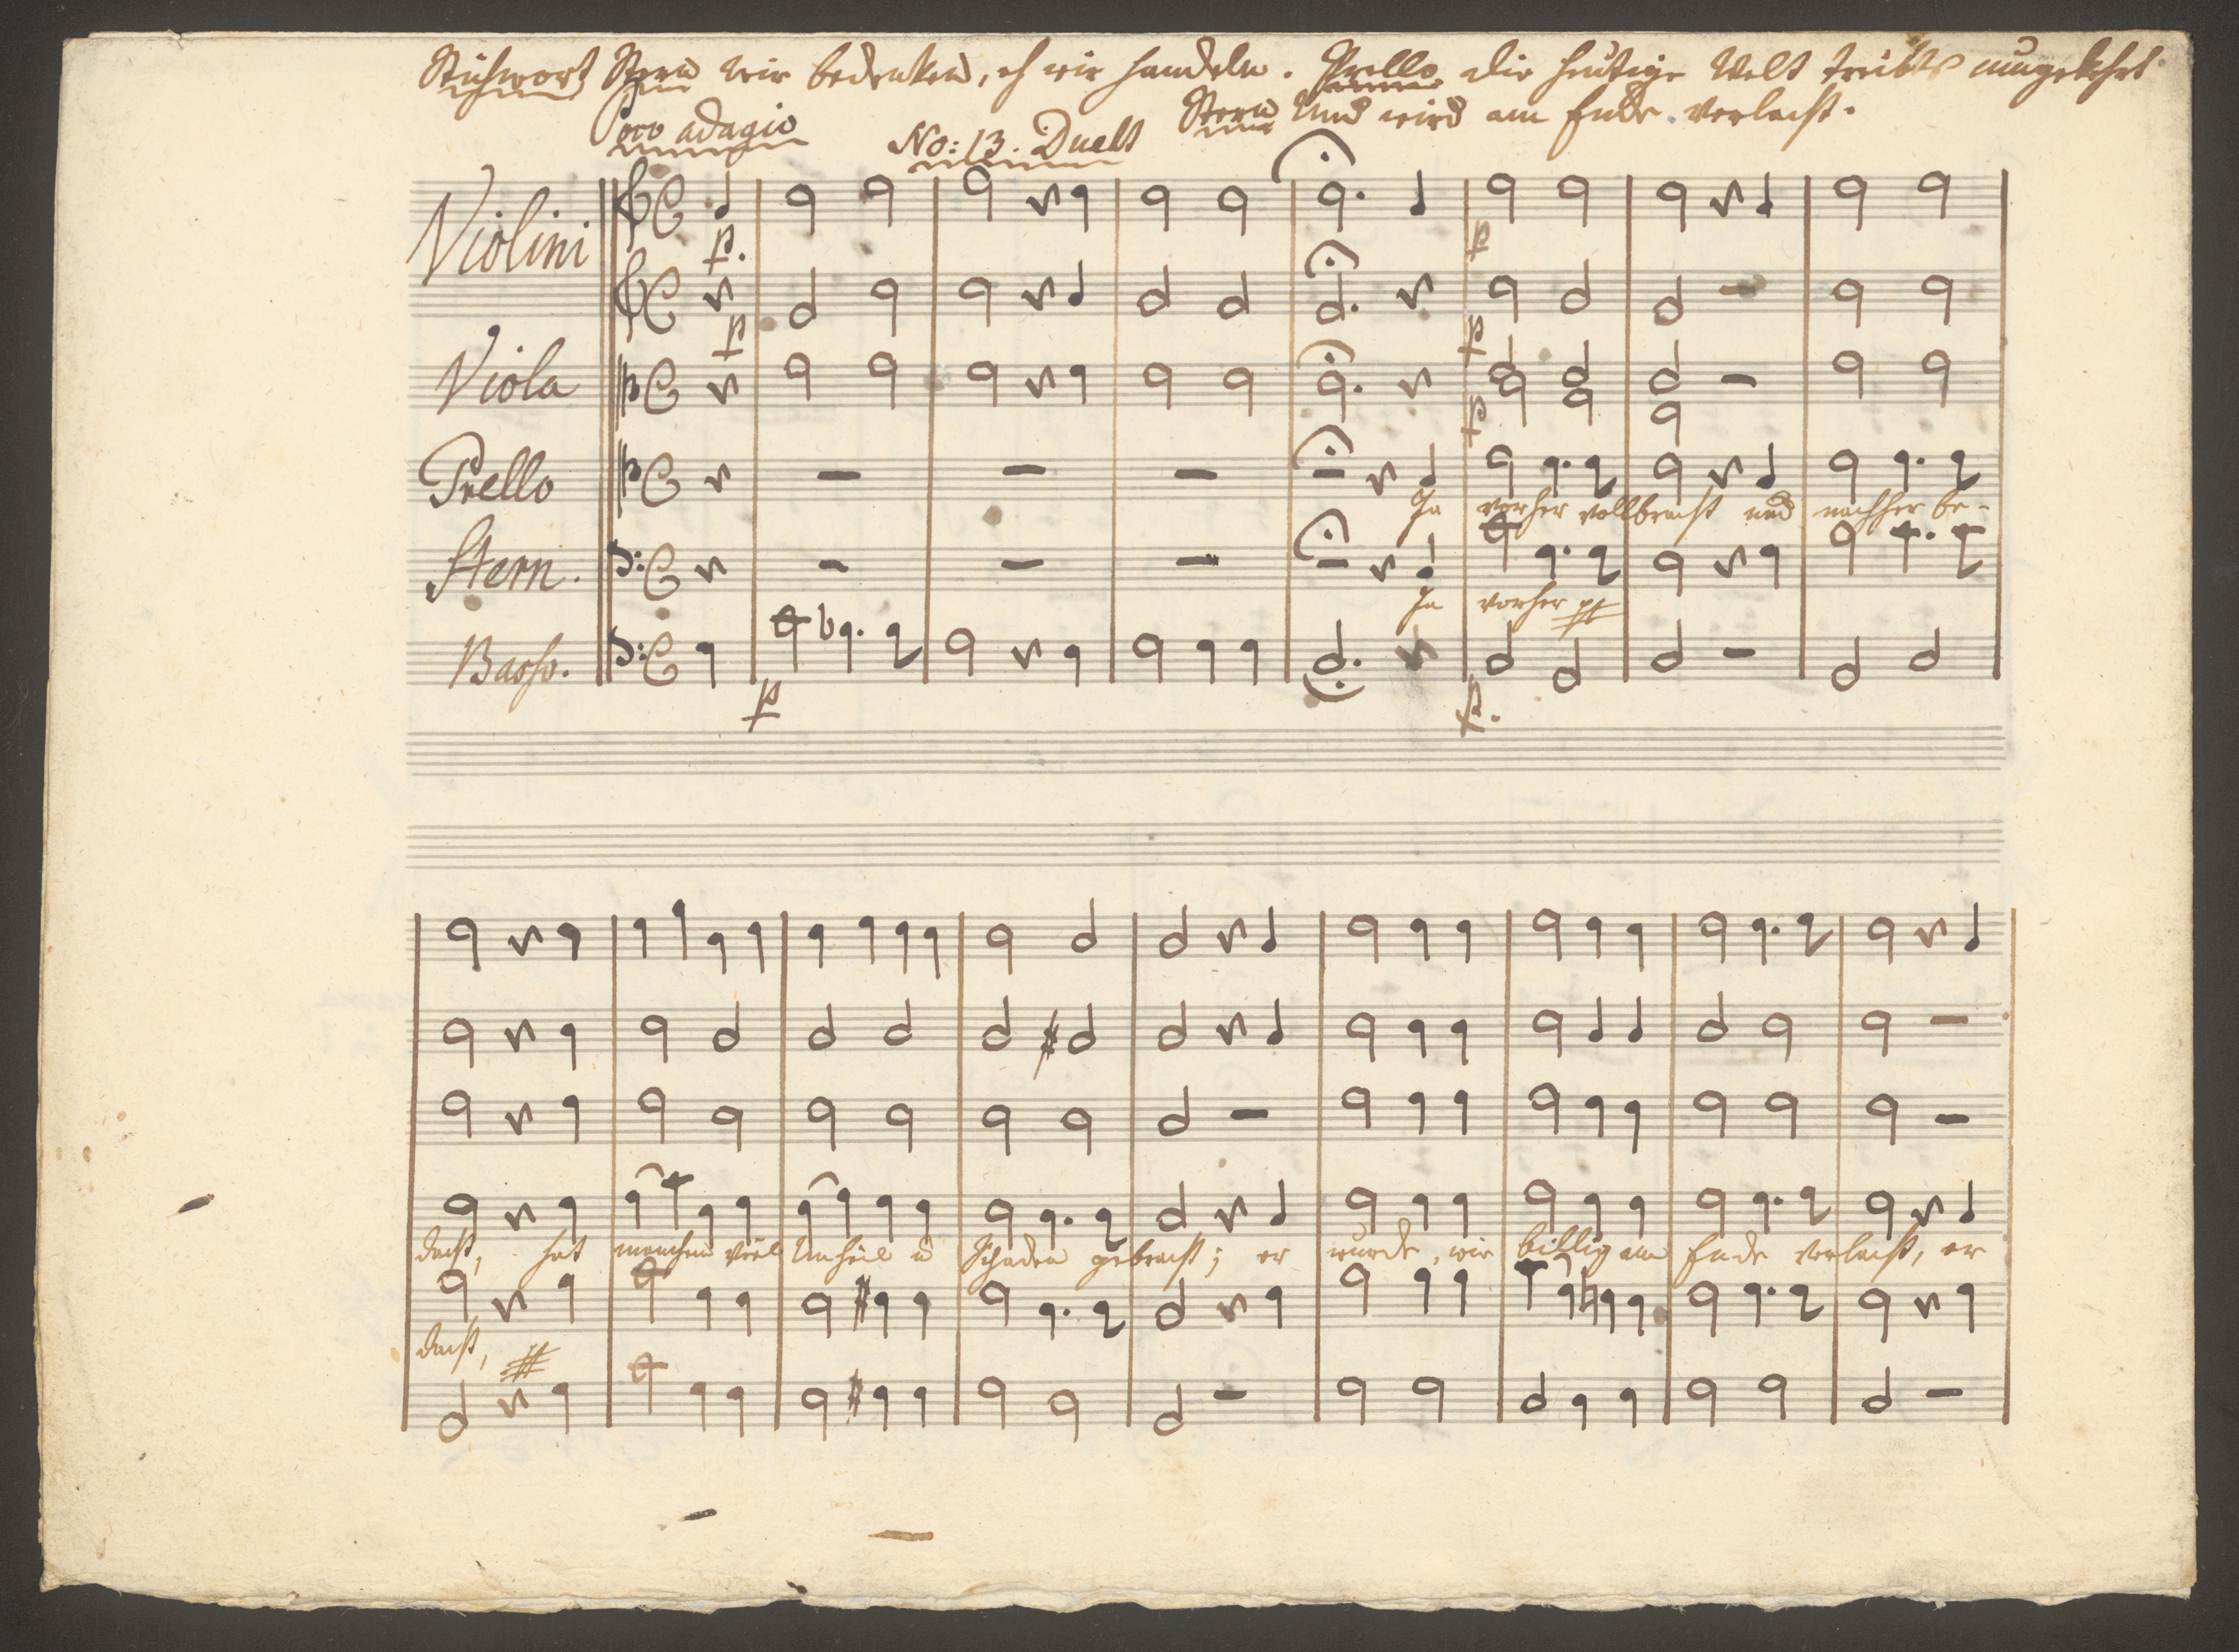 Stichwort Stern wir bedenken, eh wir handeln. Prello die heutige Welt treibts umgekehrt.
Stern Und wird am Ende verlacht.
Poco adagio
No: 13. Duett
Violini
p.
p
p
Viola
p
p
Prello
Ja vorher vollbracht und nachher be-
Stern.
Ja vorher
Basso.
p
p.
dacht, hat manchem viel Unheil u Schaden gebracht; er wurde, wie billig am Ende verlacht, er
dacht,